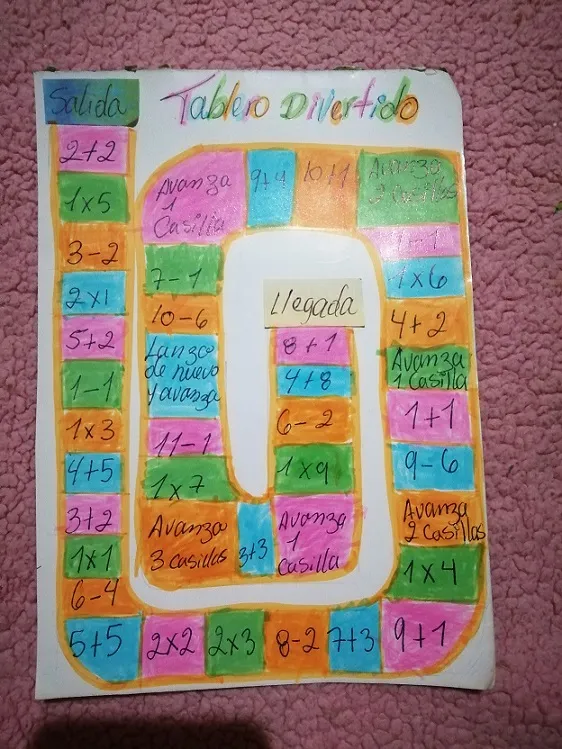 Salida
Tablero Divertido
2+2
1x5
3-2
2x1
5+2
1-1
1x3
4+5
3+2
1x1
6-4
5+5
2x2
2x3
8-2
7+3
9+1
1x4
Avanza
2 Casillas
9-6
1+1
Avanza
1 Casilla
4+2
1x6
Avanza
2 Casillas
10+1
9+4
Avanza
1
Casilla
7-1
10-6
Lanza
de nuevo
y avanza
11-1
1x7
Avanza
3 casillas
3+3
Avanza
1
Casilla
1x9
6-2
4+8
8+1
Llegada